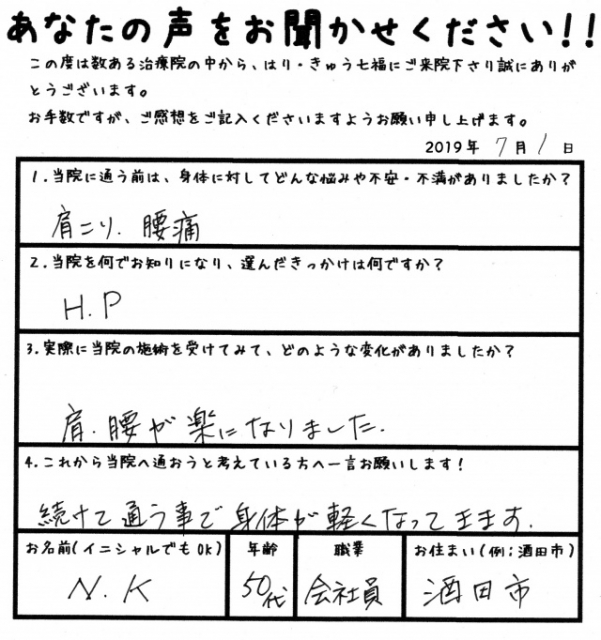 あなたの声をお聞かせください!!
この度は数ある治療院の中から、はり・きゅう七福にご来院下さり誠にありが
とうございます。
お手数ですが、ご感想をご記入くださいますようお願い申し上げます。
2019年 7月 1日
1.当院に通う前は、身体に対してどんな悩みや不安・不満がありましたか?
肩こり. 腰痛
2.当院を何でお知りになり、選んだきっかけは何ですか?
H.P
3.実際に当院の施術を受けてみて、どのような変化がありましたか?
肩.腰が楽になりました.
4.これから当院へ通おうと考えている方へ一言お願いします!
続けて通う事で身体が軽くなってきます.
お名前(イニシャルでもOK) 年齢 職業 お住まい(例;酒田市)
N.K 50代 会社員 酒田市